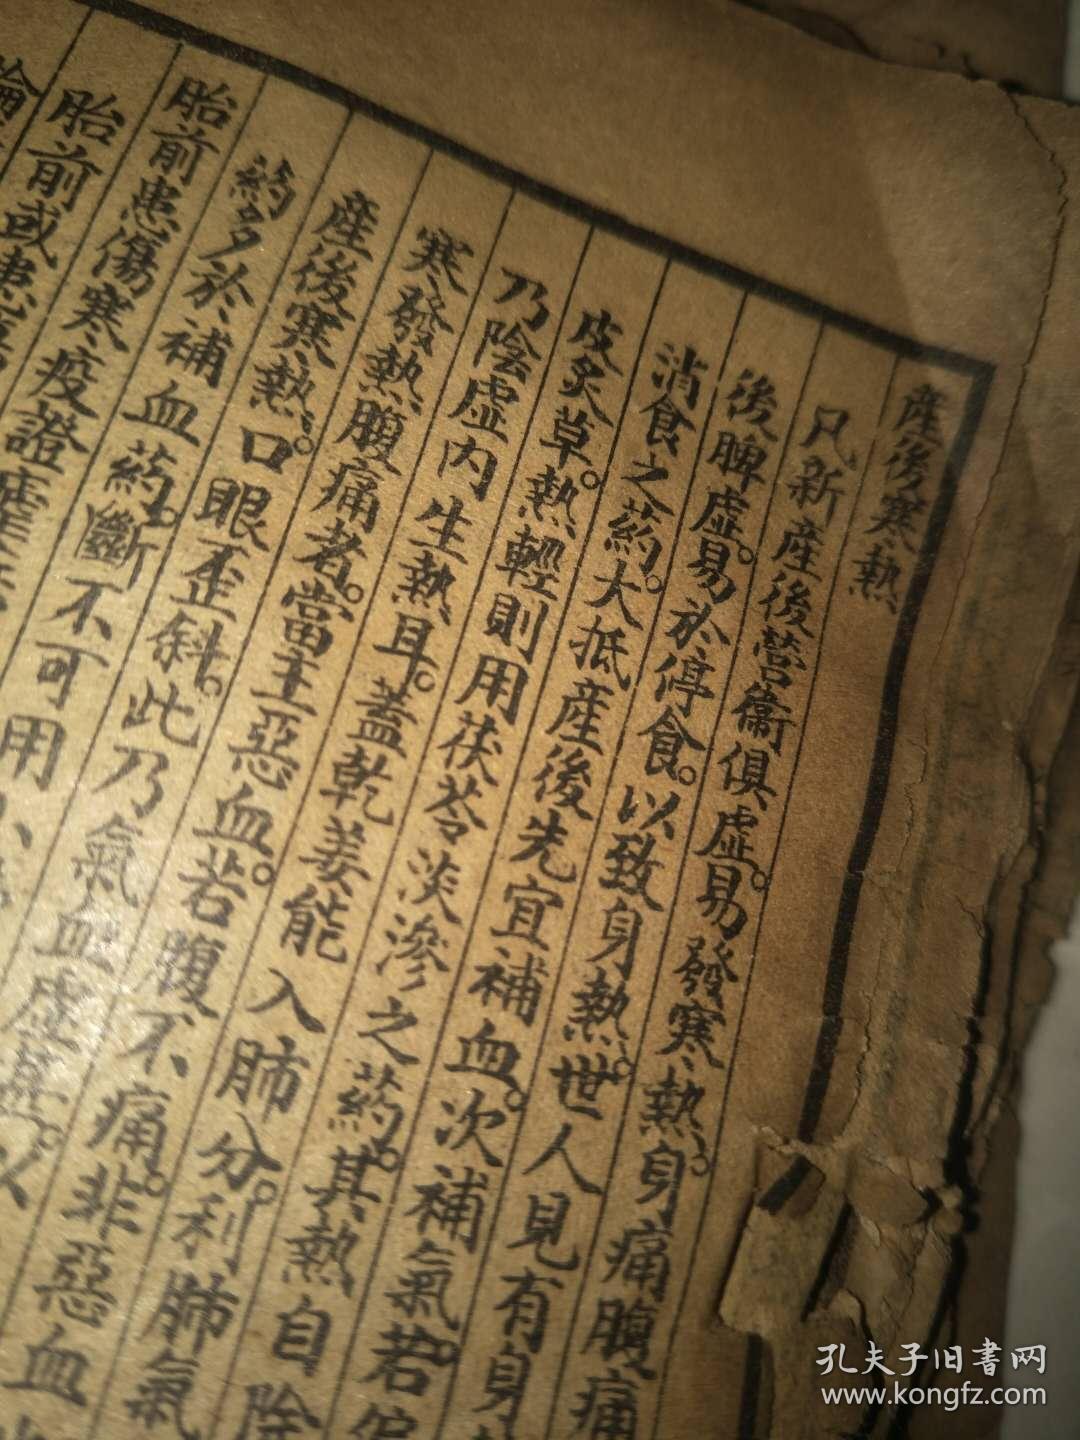 産後寒熱
凡新産後營衛俱虛。易發寒熱。身痛腹痛
後脾虛。易於停食。以致身熱。世人見有身
消食之药。大抵産後先宜補血。次補氣。若偏
皮炙草。熱輕則用茯苓淡滲之药。其熱自除
乃陰虛内生熱耳。蓋乾姜能入肺分。利肺氣
寒發熱腹痛者。當主惡血。若腹不痛。非惡血
産後寒熱。口眼歪斜。此乃氣血虛甚。以
药多於補血药。斷不可用
胎前患傷寒疫證
胎前或患